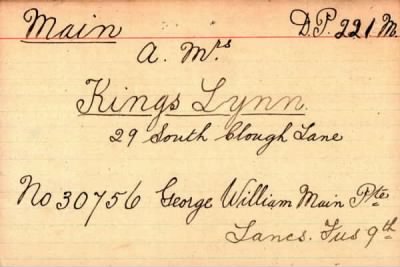 Main D.P. 221 M.
A. Mrs
Kings Lynn.
29 South Clough Lane
No 30756 George William Main Pte
Lancs. Fus 9th